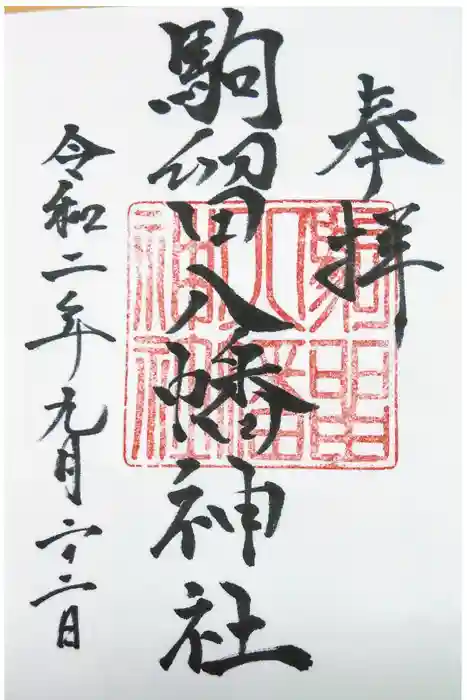 奉拝
駒留八幡神社
令和二年九月二十二日
駒留八幡神社